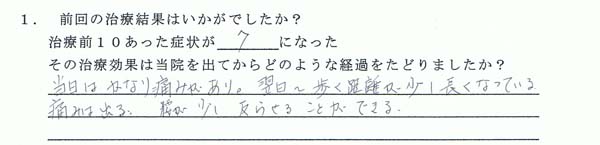 1. 前回の治療結果はいかがでしたか?
治療前10あった症状が 7 になった
その治療効果は当院を出てからどのような経過をたどりましたか?
当日はかなり痛みがあり。翌日〜歩く距離が少し長くなっている
痛みは出る。 腰が少し反らせることができる.